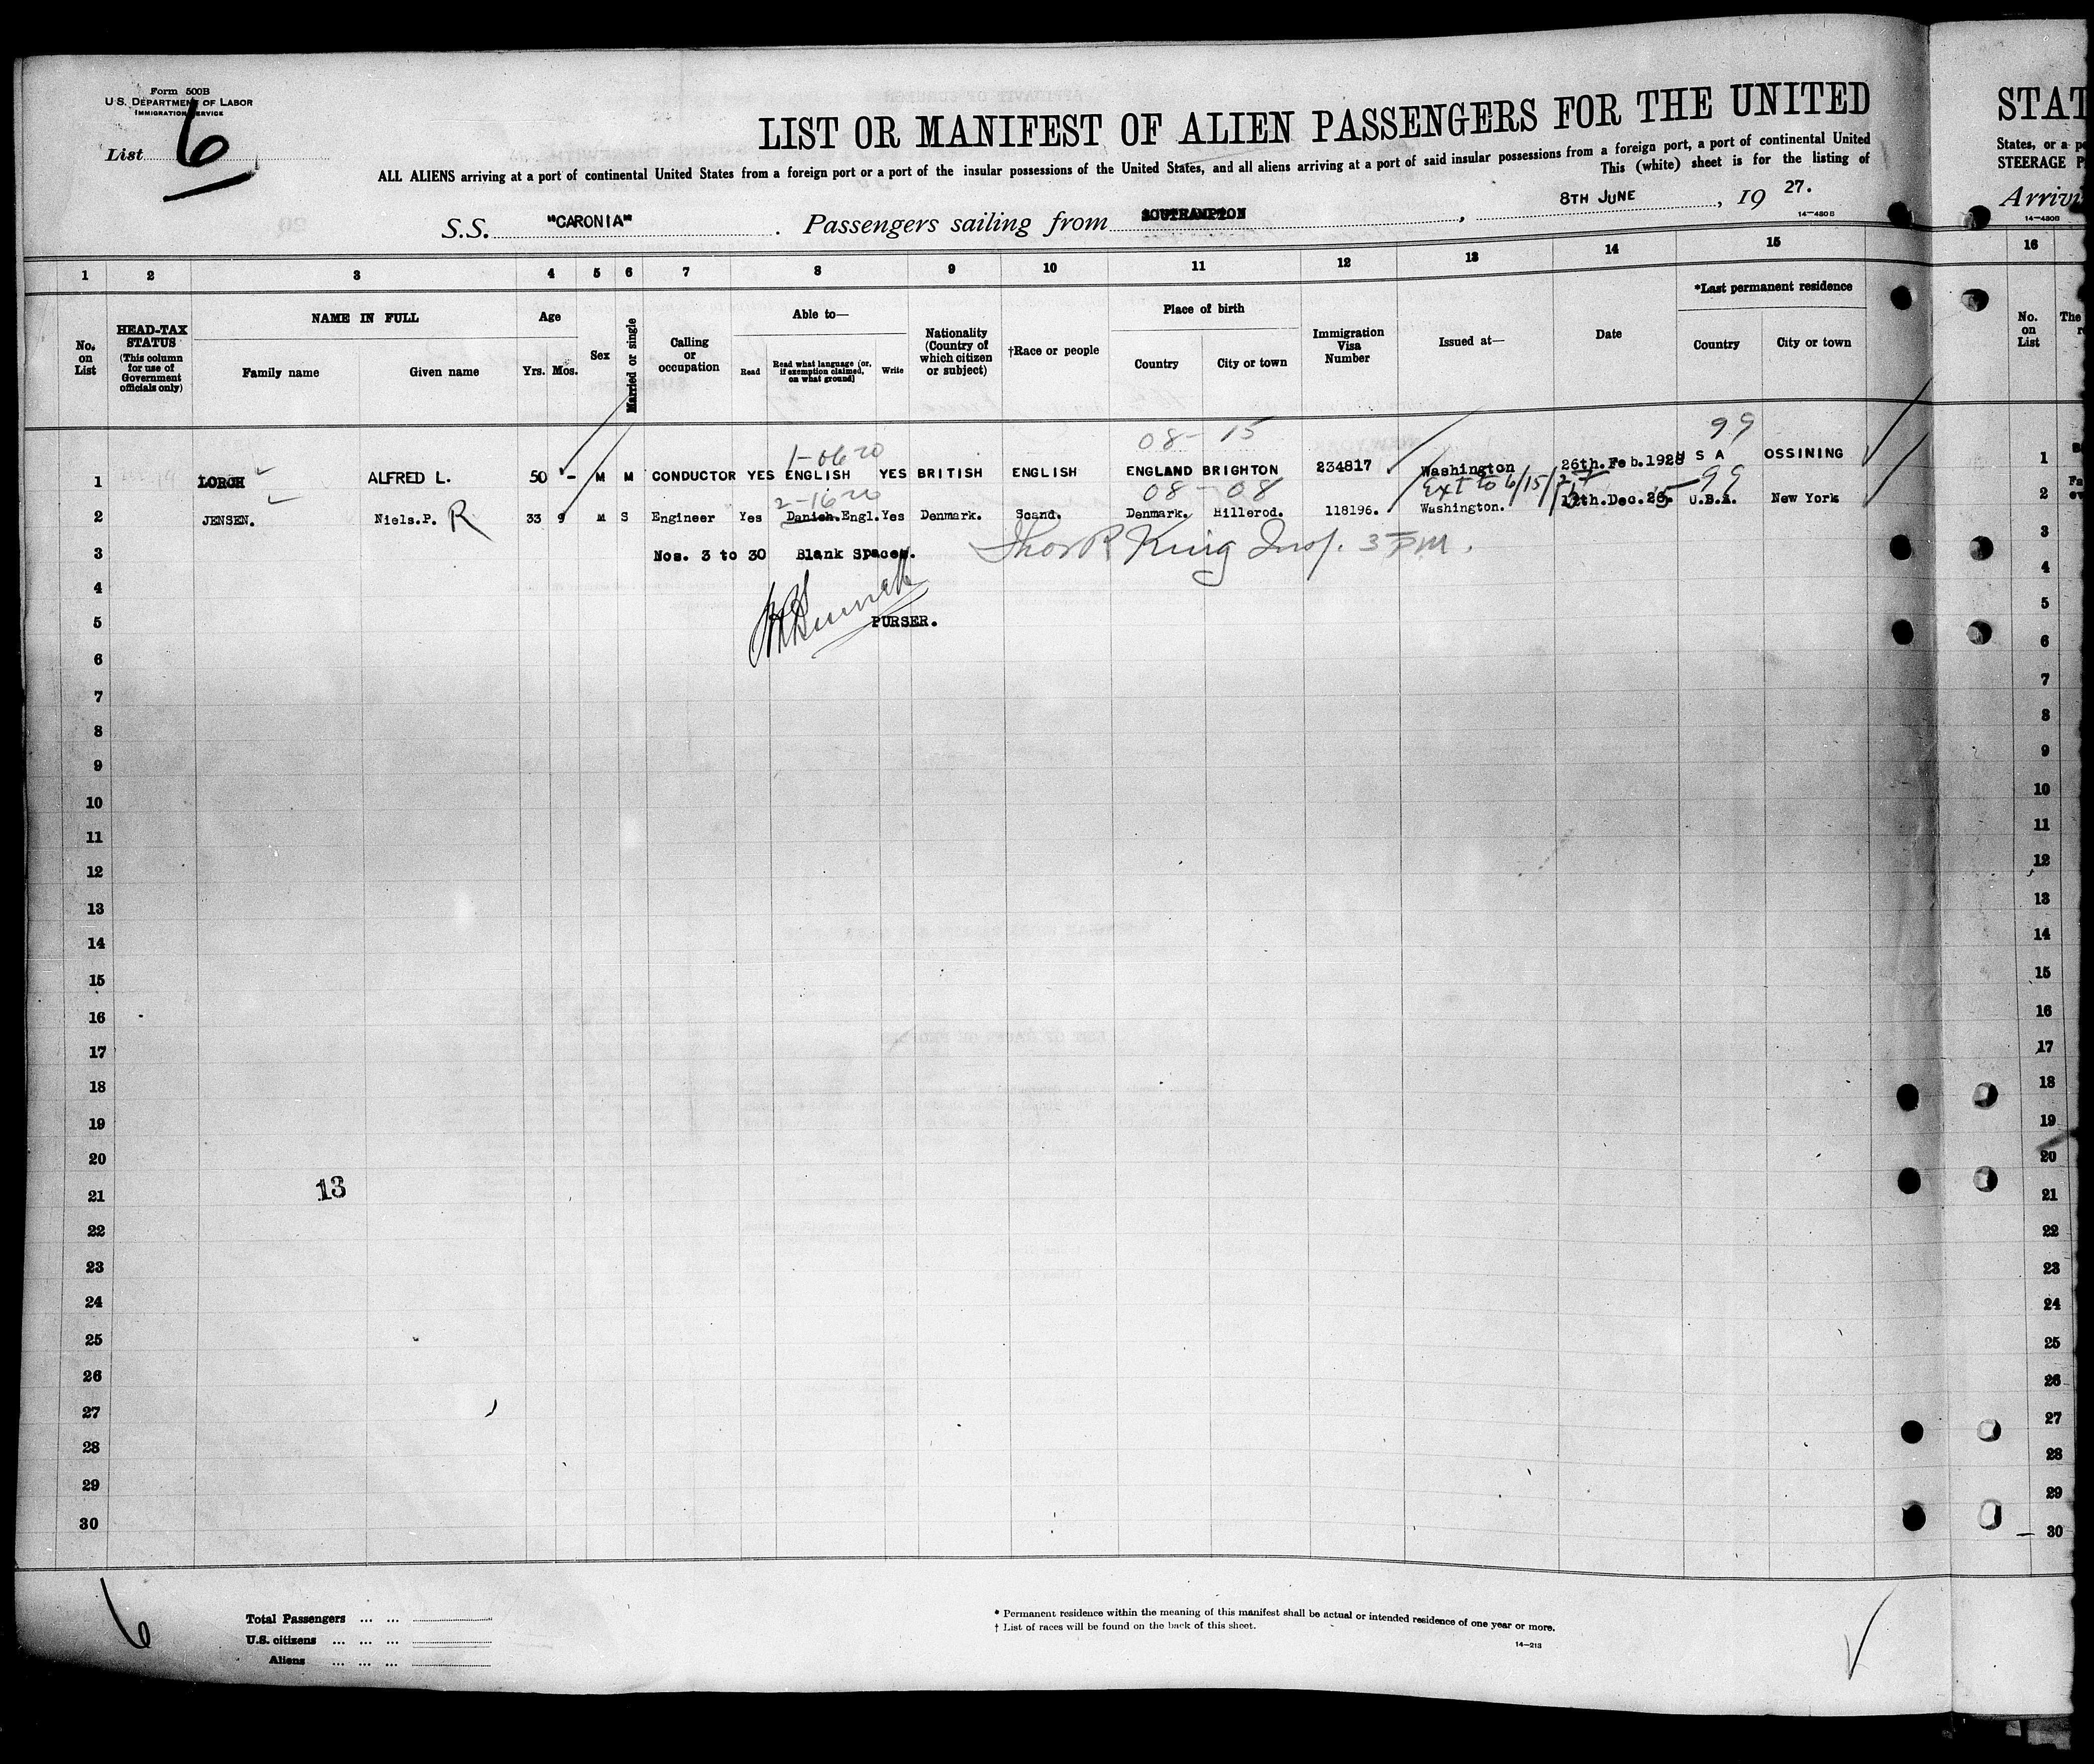 Form 500B
U.S. DEPARTMENT OF LABOR
IMMIGRATION SERVICE
List 6
LIST OR MANIFEST OF ALIEN PASSENGERS FOR THE UNITED
STAT
ALL ALIENS arriving at a port of continental United States from a foreign port or a port of the insular possessions of the United States, and all aliens arriving at a port of said insular possessions from a foreign port, a port of continental United
States, or a p
This (white) sheet is for the listing of
STEERAGE P
S.S. "CARONIA". Passengers sailing from SOUTHAMPTON, 8TH JUNE, 19 27.
Arrivi
14—480B
14—480B
1 2 3 4 5 6 7 8 9 10 11 12 13 14 15 16
No. on List
HEAD-TAX STATUS (This column for use of Government officials only)
NAME IN FULL
Family name Given name
Age
Yrs. Mos.
Sex
Married or single
Calling or occupation
Able to—
Read Read what language (or, if exemption claimed, on what ground) Write
Nationality (Country of which citizen or subject)
†Race or people
Place of birth
Country City or town
Immigration Visa Number
Issued at—
Date
*Last permanent residence
Country City or town
No. on List
The
1-0620 08- 15 99
1 LORCH ALFRED L. 50 - M M CONDUCTOR YES ENGLISH YES BRITISH ENGLISH ENGLAND BRIGHTON 234817 Washington 26th.Feb.1928 U S A OSSINING 1
2-1620 08 - 08 Ext to 6/15/27 99
2 JENSEN. Niels.P. R 33 9 M S Engineer Yes Danish.Engl. Yes Denmark. Scand. Denmark. Hillerod. 118196. Washington. 12th.Dec. U.S.A. New York 2
3 Nos. 3 to 30 Blank Spaces. King Insp. 3 PM. 3
4 4
5 PURSER. 5
6 6
7 7
8 8
9 9
10 10
11 11
12 12
13 13
14 14
15 15
16 16
17 17
18 18
19 19
20 20
21 13 21
22 22
23 23
24 24
25 25
26 26
27 27
28 28
29 29
30 30
6
Total Passengers ... ...
U.S. citizens ... ... ...
Aliens ... ... ...
* Permanent residence within the meaning of this manifest shall be actual or intended residence of one year or more.
† List of races will be found on the back of this sheet.
14—213